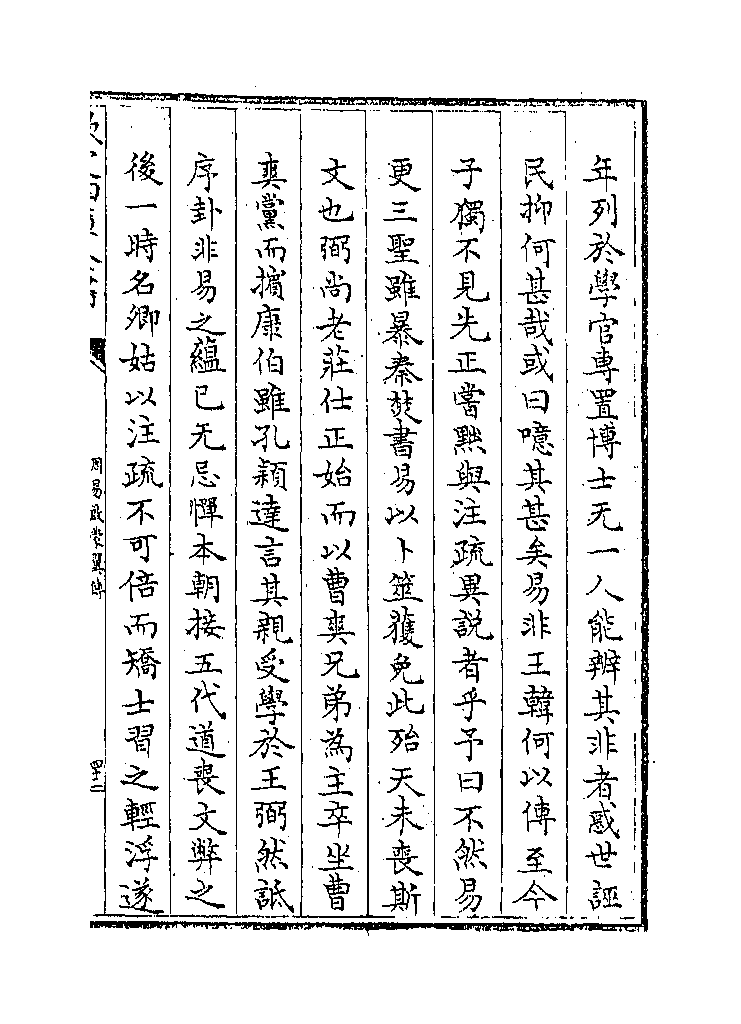 年列於學官専置博士无一人能辨其非者惑世誣
民抑何甚哉或曰噫其甚矣易非王韓何以傳至今
子獨不見先正嘗黙與注疏異説者乎予曰不然易
更三聖雖暴秦焚書易以卜筮獲免此殆天未喪斯
文也弼尚老莊仕正始而以曹爽兄弟為主卒坐曹
爽黨而擯康伯雖孔穎達言其親受學於王弼然詆
序卦非易之蘊已无忌憚本朝接五代道喪文弊之
後一時名卿姑以注疏不可倍而矯士習之輕浮遂
周易啟蒙翼傳
四十二